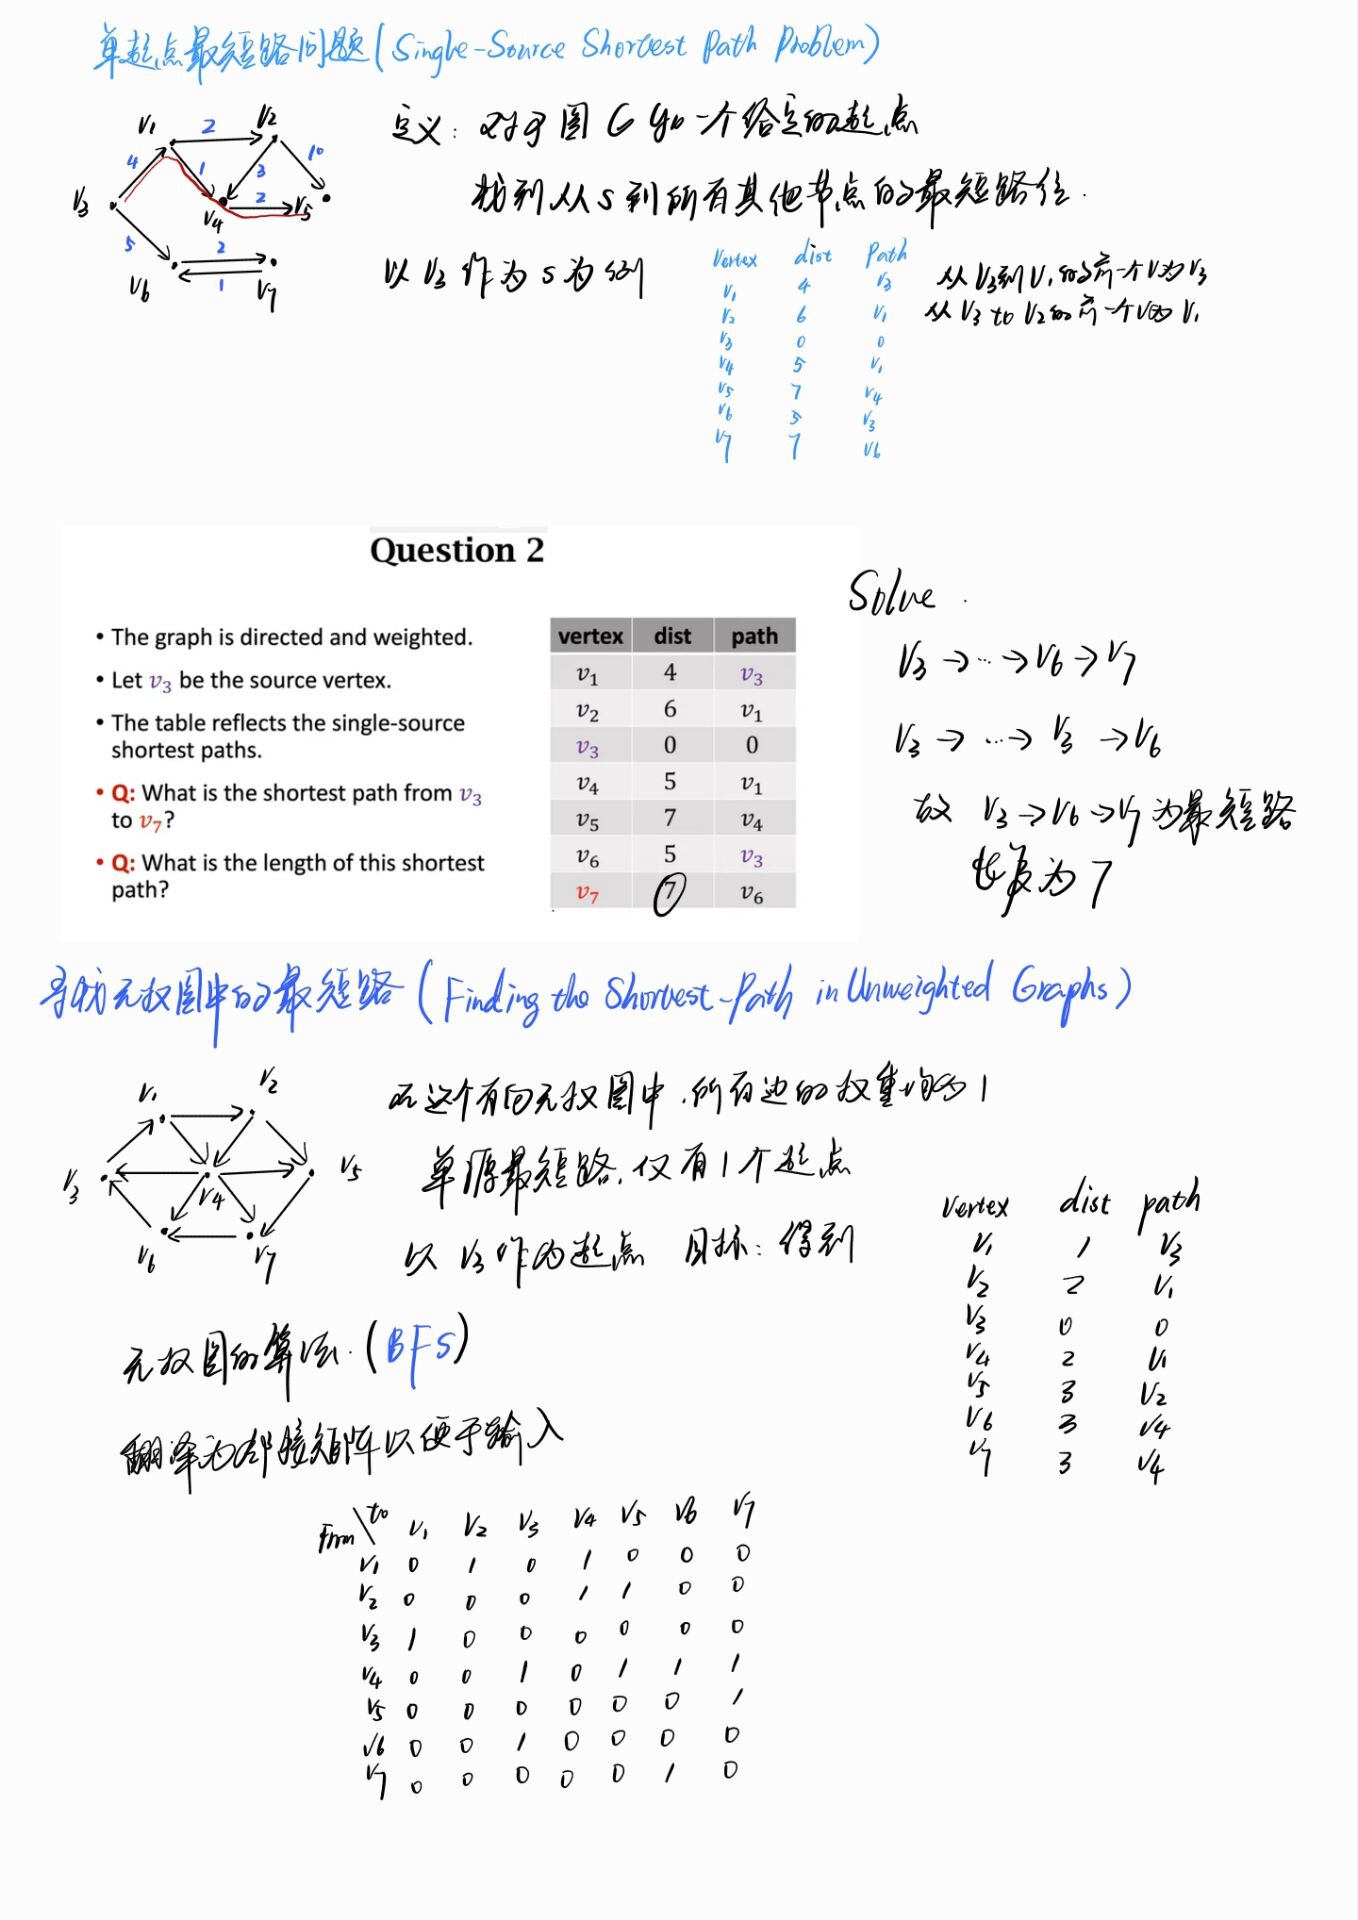 单起点最短路问题(Single-Source Shortest Path Problem)
定义: 对于图G 和一个给定的起点
找到从s到所有其他节点的最短路径.
以 V3 作为 s 为例
V1 2 V2
4 1 3 10
V3 V4 2 V5
5 2
V6 1 V7
Vertex dist Path
V1 4 V3
V2 6 V1
V3 0 0
V4 5 V1
V5 7 V4
V6 5 V3
V7 7 V6
从V3到V1的前一个V为V3
从 V3 to V2的前一个V为 V1
Question 2
• The graph is directed and weighted.
• Let v3 be the source vertex.
• The table reflects the single-source
shortest paths.
• Q: What is the shortest path from v3
to v7?
• Q: What is the length of this shortest
path?
vertex dist path
v1 4 v3
v2 6 v1
v3 0 0
v4 5 v1
v5 7 v4
v6 5 v3
v7 7 v6
Solve.
V3 → ... → V6 → V7
V3 → ... → V3 → V6
故 V3 → V6 → V7 为最短路
长度为 7
寻找无权图中的最短路(Finding the Shortest-Path in Unweighted Graphs)
V1 V2
V3 V4 V5
V6 V7
在这个有向无权图中,所有边的权重均为1
单源最短路,仅有1个起点
以 V3 作为起点 目标: 得到
Vertex dist path
V1 1 V3
V2 2 V1
V3 0 0
V4 2 V1
V5 3 V2
V6 3 V4
V7 3 V4
无权图的算法.(BFS)
翻译为邻接矩阵以便于输入
From\to V1 V2 V3 V4 V5 V6 V7
V1 0 1 0 1 0 0 0
V2 0 0 0 1 1 0 0
V3 1 0 0 0 0 0 0
V4 0 0 1 0 1 1 1
V5 0 0 0 0 0 0 1
V6 0 0 1 0 0 0 0
V7 0 0 0 0 0 1 0